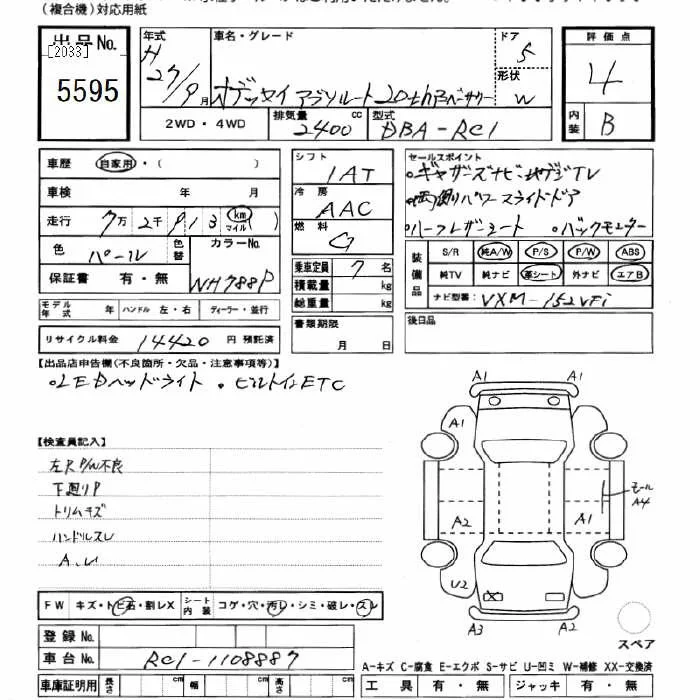 (複合機)対応用紙
出品No.
[2033]
5595
年式 H 27/9月
車名・グレード
オデッセイ アブソルート 20thアニバーサリー
ドア 5
形状 W
評価点 4
内装 B
2WD・4WD
排気量 2400 cc
型式 DBA-RC1
車歴 自家用・( )
車検 年 月
走行 7万2千913 (km マイル)
色 パール
色替
カラーNo. NH788P
保証書 有・無
モデル年式 年 ハンドル 左・右 ディーラー・並行
リサイクル料金 14420円 預託済
シフト IAT
冷房 AAC
燃料 G
乗車定員 7名
積載量 kg
総重量 kg
書類期限
月 日
セールスポイント
・ギャザーズナビ・地デジTV
・両側パワースライドドア
・ハーフレザーシート ・バックモニター
装備品
S/R 純A/W P/S P/W ABS
純TV 純ナビ 革シート 外ナビ エアB
ナビ型番: VXM-152VFi
後日品
【出品店申告欄(不良箇所・欠品・注意事項等)】
・LEDヘッドライト ・ビルトインETC
【検査員記入】
左R P/W不良
下廻りP
トリムキズ
ハンドルスレ
A.U
A1 A1
A1
モール
A4
A2 A1
U2
A3 A2
スペア
FW キズ・トビ石・割レX
シート内装 コゲ・穴・汚レ・シミ・破レ・スレ
登録No.
車台No. RC1-1108887
A-キズ C-腐食 E-エクボ S-サビ U-凹ミ W-補修 XX-交換済
車庫証明用 長さ cm 幅 cm 高さ cm
工具 有・無 ジャッキ 有・無